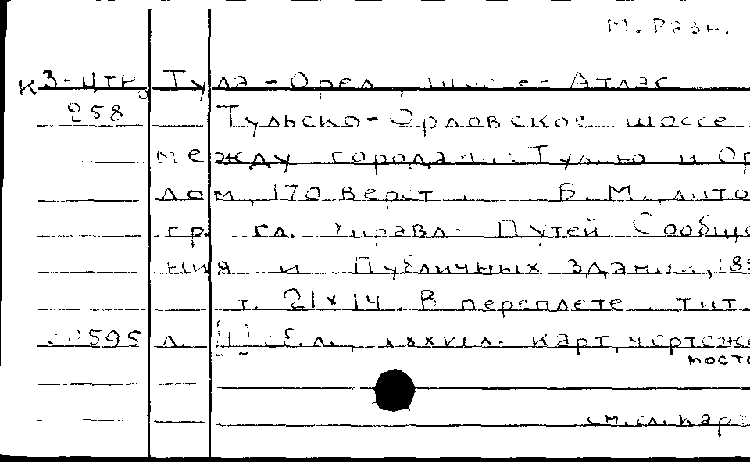 М. Разн.
К3-Цтр, Тула - Орел, шоссе - Атлас
258 Тульско-Орловское шоссе
между городами: Тулою и Ор
лом, 170 верст. Б. М., лито
гр. гл. Управл. Путей Сообще
ния и Публичных зданий, 18
т. 21×14. В переплете. тит.
595 л. карт, чертеже
мосто
см. сл. карт